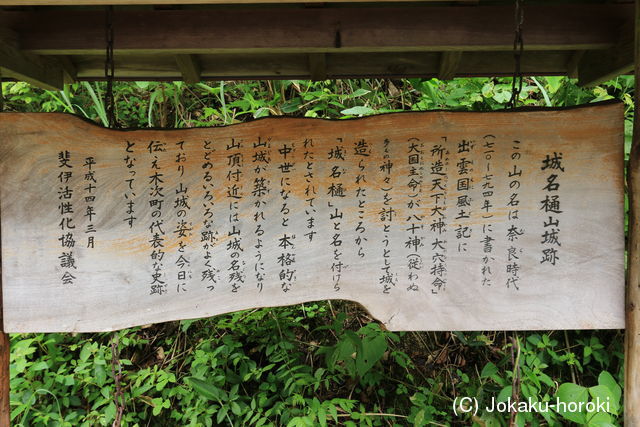 城名樋山城跡
この山の名は奈良時代
(七一〇〜七九四年)に書かれた
出雲国風土記に
「所造天下大神大穴持命」
(大国主命)が八十神(従わぬ
多くの神々)を討とうとして城を
造られたところから
「城名樋」山と名を付けら
れたとされています
中世になると本格的な
山城が築かれるようになり
山頂付近には山城の名残を
とどめるいろいろな跡がよく残っ
ており山城の姿を今日に
伝え木次町の代表的な史跡
となっています
平成十四年三月
斐伊活性化協議会
(C) Jokaku-horoki